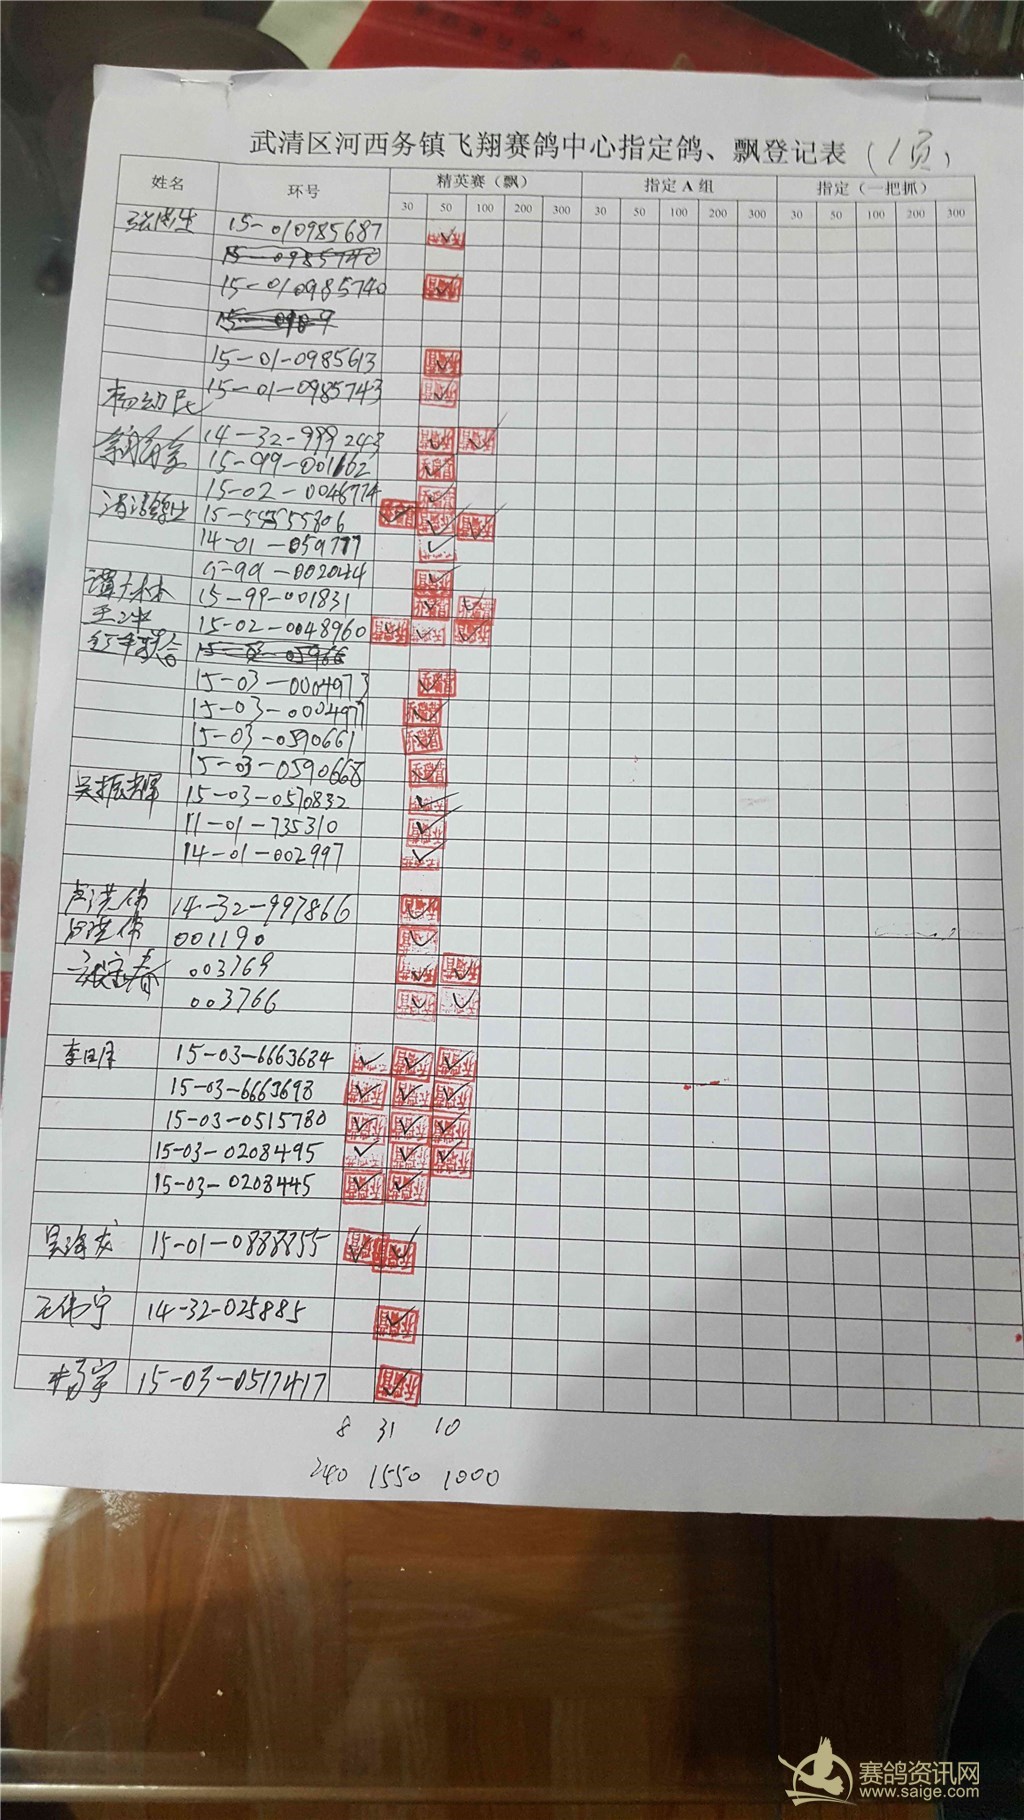 武清区河西务镇飞翔赛鸽中心指定鸽、飘登记表 (1页)
姓名 环号 精英赛（飘） 指定A组 指定（一把抓）
30 50 100 200 300 30 50 100 200 300 30 50 100 200 300
15-010985687
15-0985740
15-010985740
15-01-0985613
15-01-0985743
14-32-999243
15-99-001662
15-02-0046774
15-55555806
14-01-059777
15-99-001831
15-02-0048960
15-03-0004973
15-03-000497
15-03-0590661
15-03-0590668
吴振辉 15-03-0570832
11-01-735310
14-01-002997
卢洪伟 14-32-997866
吕洪伟 001190
003769
003766
李田月 15-03-6663684
15-03-6663698
15-03-0515780
15-03-0208495
15-03-0208445
吴海龙 15-01-0888855
王伟宁 14-32-025885
杨宇 15-03-0517417
8 31 10
240 1550 1000
赛鸽资讯网
www.saige.com